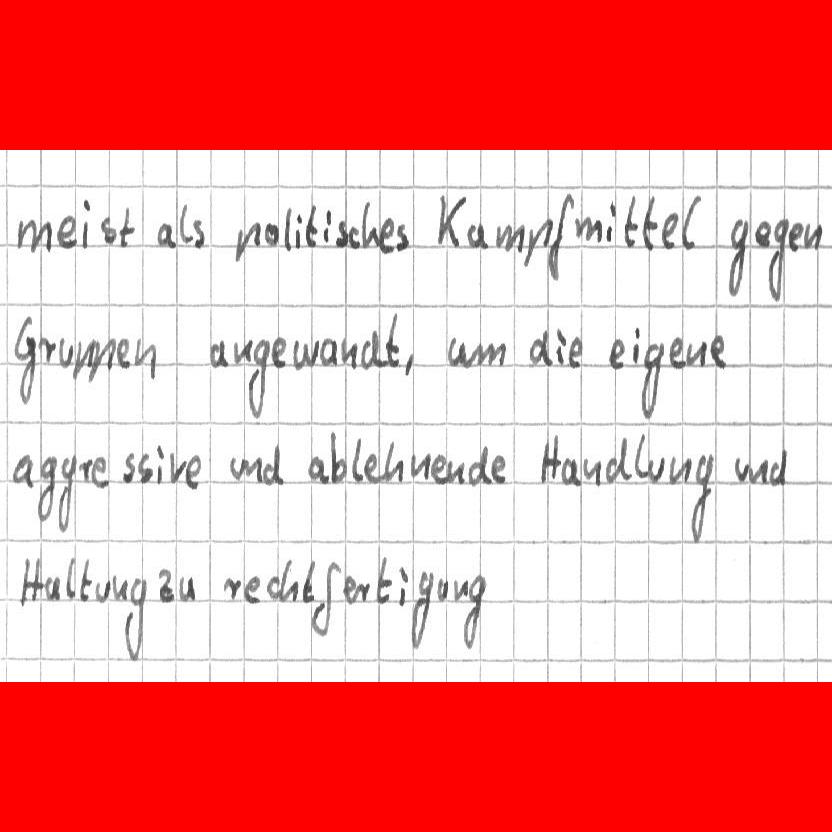 meist als politisches Kampfmittel gegen
Gruppen angewandt, um die eigene
aggressive und ablehnende Handlung und
Haltung zu rechtfertigung